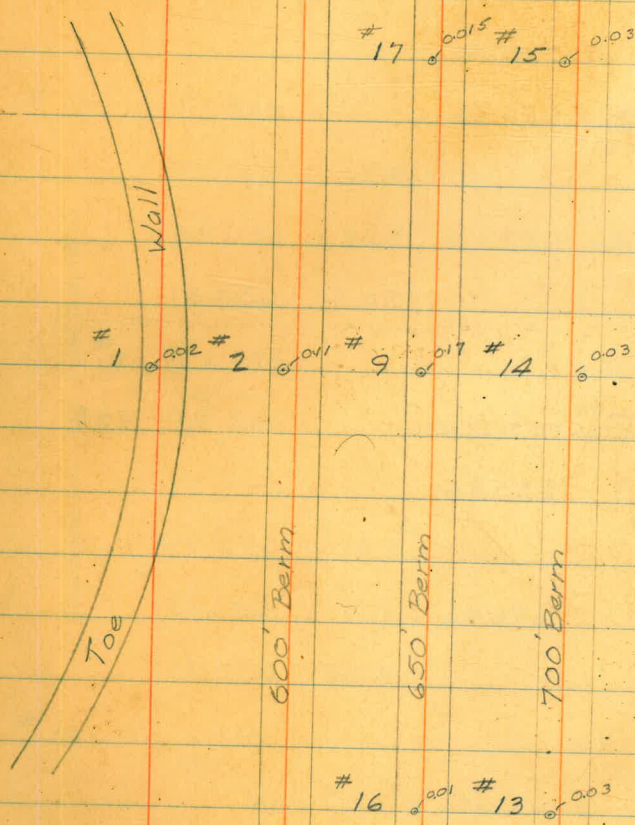 # 17 0.015 # 15 0.03
Wall
# 1 0.02 # 2 0.11 # 9 0.17 # 14 0.03
Toe
600' Berm
650' Berm
700' Berm
# 16 0.01 # 13 0.03